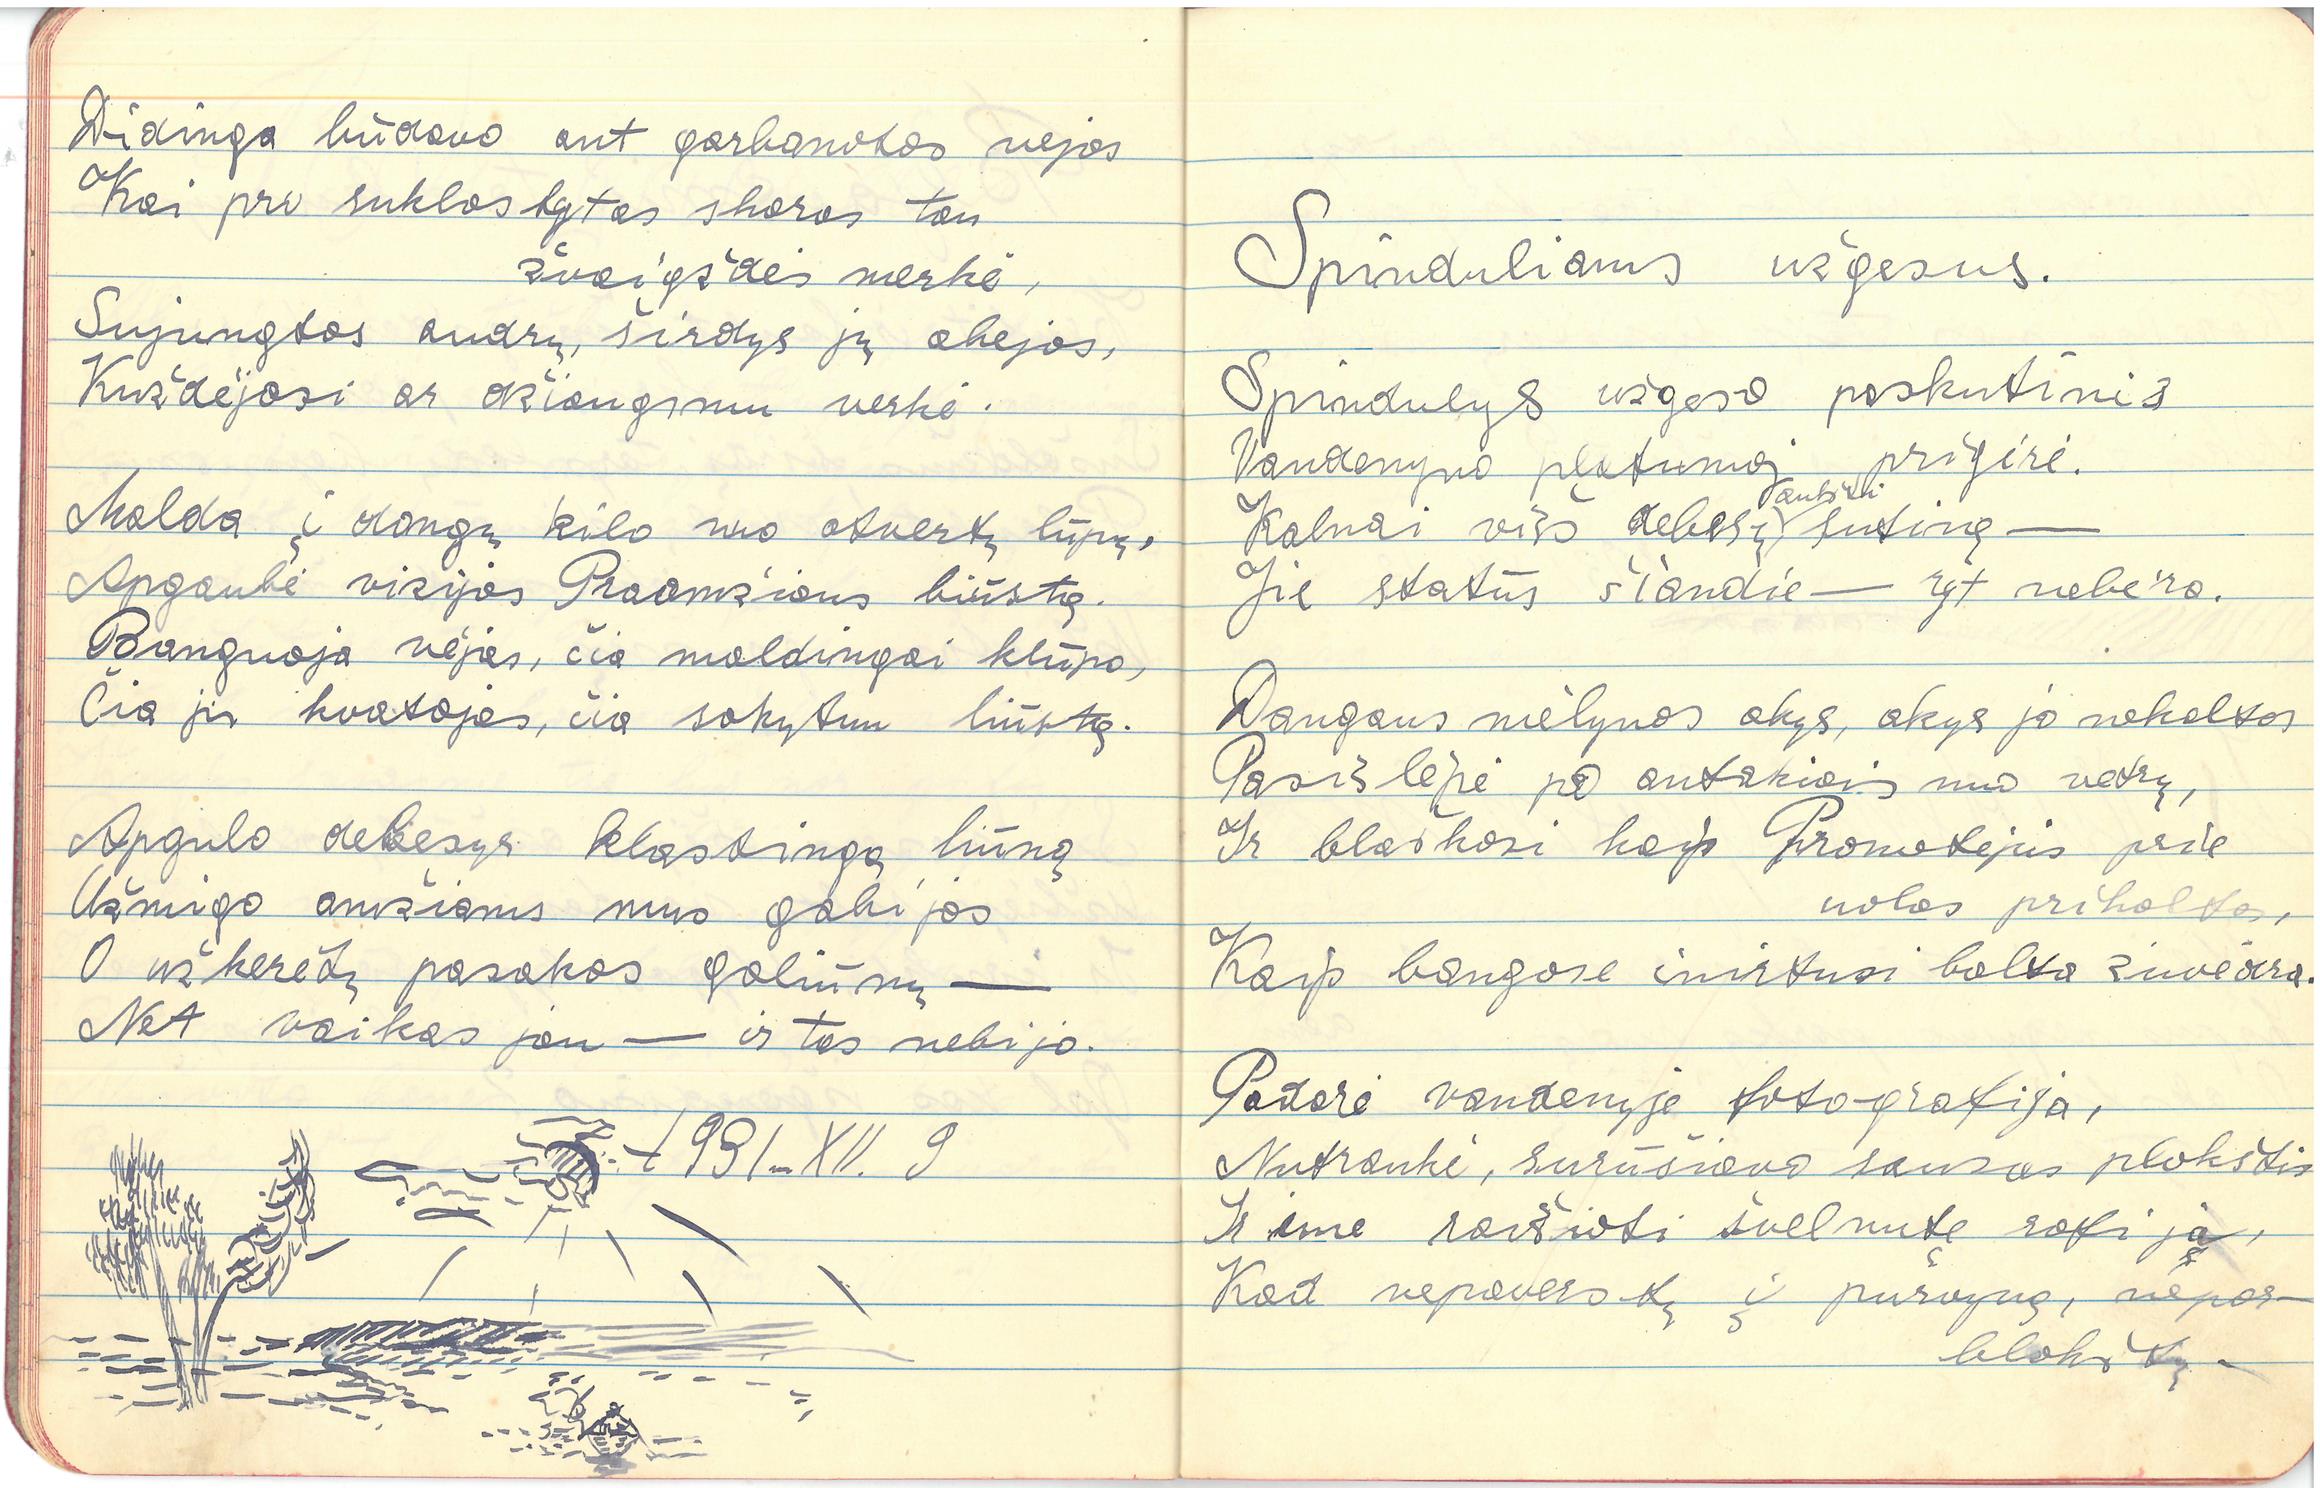 Didinga būdavo ant garbanotos vejos
Kai pro suklostytas skaras tau
žvaigždės merkė,
Sujungtos audrų, širdys jų abejos,
Kuždėjosi ar džiaugsmu verkė.
Malda į dangų kilo nuo atvertų lūpų,
Apgaubė vizijos Praamžiaus būstą.
Banguoja vėjas, čia maldingai klūpo,
Čia jis kvatojas, čia sakytum liūstą.
Apgulo debesys klastingą liūną
Užmigo amžiams mus gabijos
O užkerėtų pasakos galiūnų —
Net vaikas jau — ir tas nebijo.
1931-XII. 9
Spinduliams užgesus.
Spindulys užgeso paskutinis
Vandenyno platumoj prigėrė.
Kalnai virš debesų aukštai sutinę —
Jie statūs šiandie — ryt nebėra.
Dangaus mėlynos akys, akys jo nekaltos
Pasislėpė po antakiais nuo vėtrų,
Ir blaškosi kaip Prometėjus prie
uolos prikaltas,
Kaip bangose įnirtusi balta žuvėdra.
Padarė vandenyje fotografiją,
Nutraukė, surūšiavo sausas plokštis
Ir ėmė raišioti švelnutę rafiją,
Kad nepaverstų į purvyną, nepar-
blokštų.